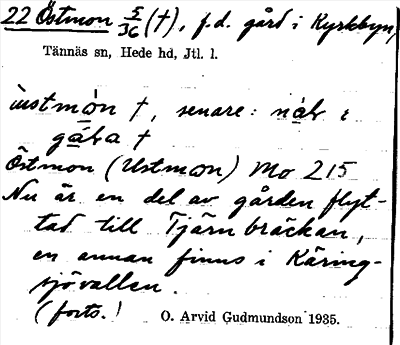 22 Östmon 5/36 (†), f.d. gård i Kyrkbyn,
Tännäs sn, Hede hd, Jtl. l.
ùstmòn †, senare: nàv i
gàva †
Östmon (Ustmon) Mo 215
Nu är en del av gården flyt-
tad till Tjärnbräckan,
en annan finns i Käring-
sjövallen.
(forts.)
O. Arvid Gudmundson 1935.